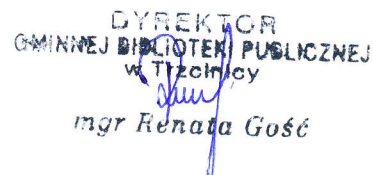 DYREKTOR
GMINNEJ BIBLIOTEKI PUBLICZNEJ
w Trzcinicy
mgr Renata Gość